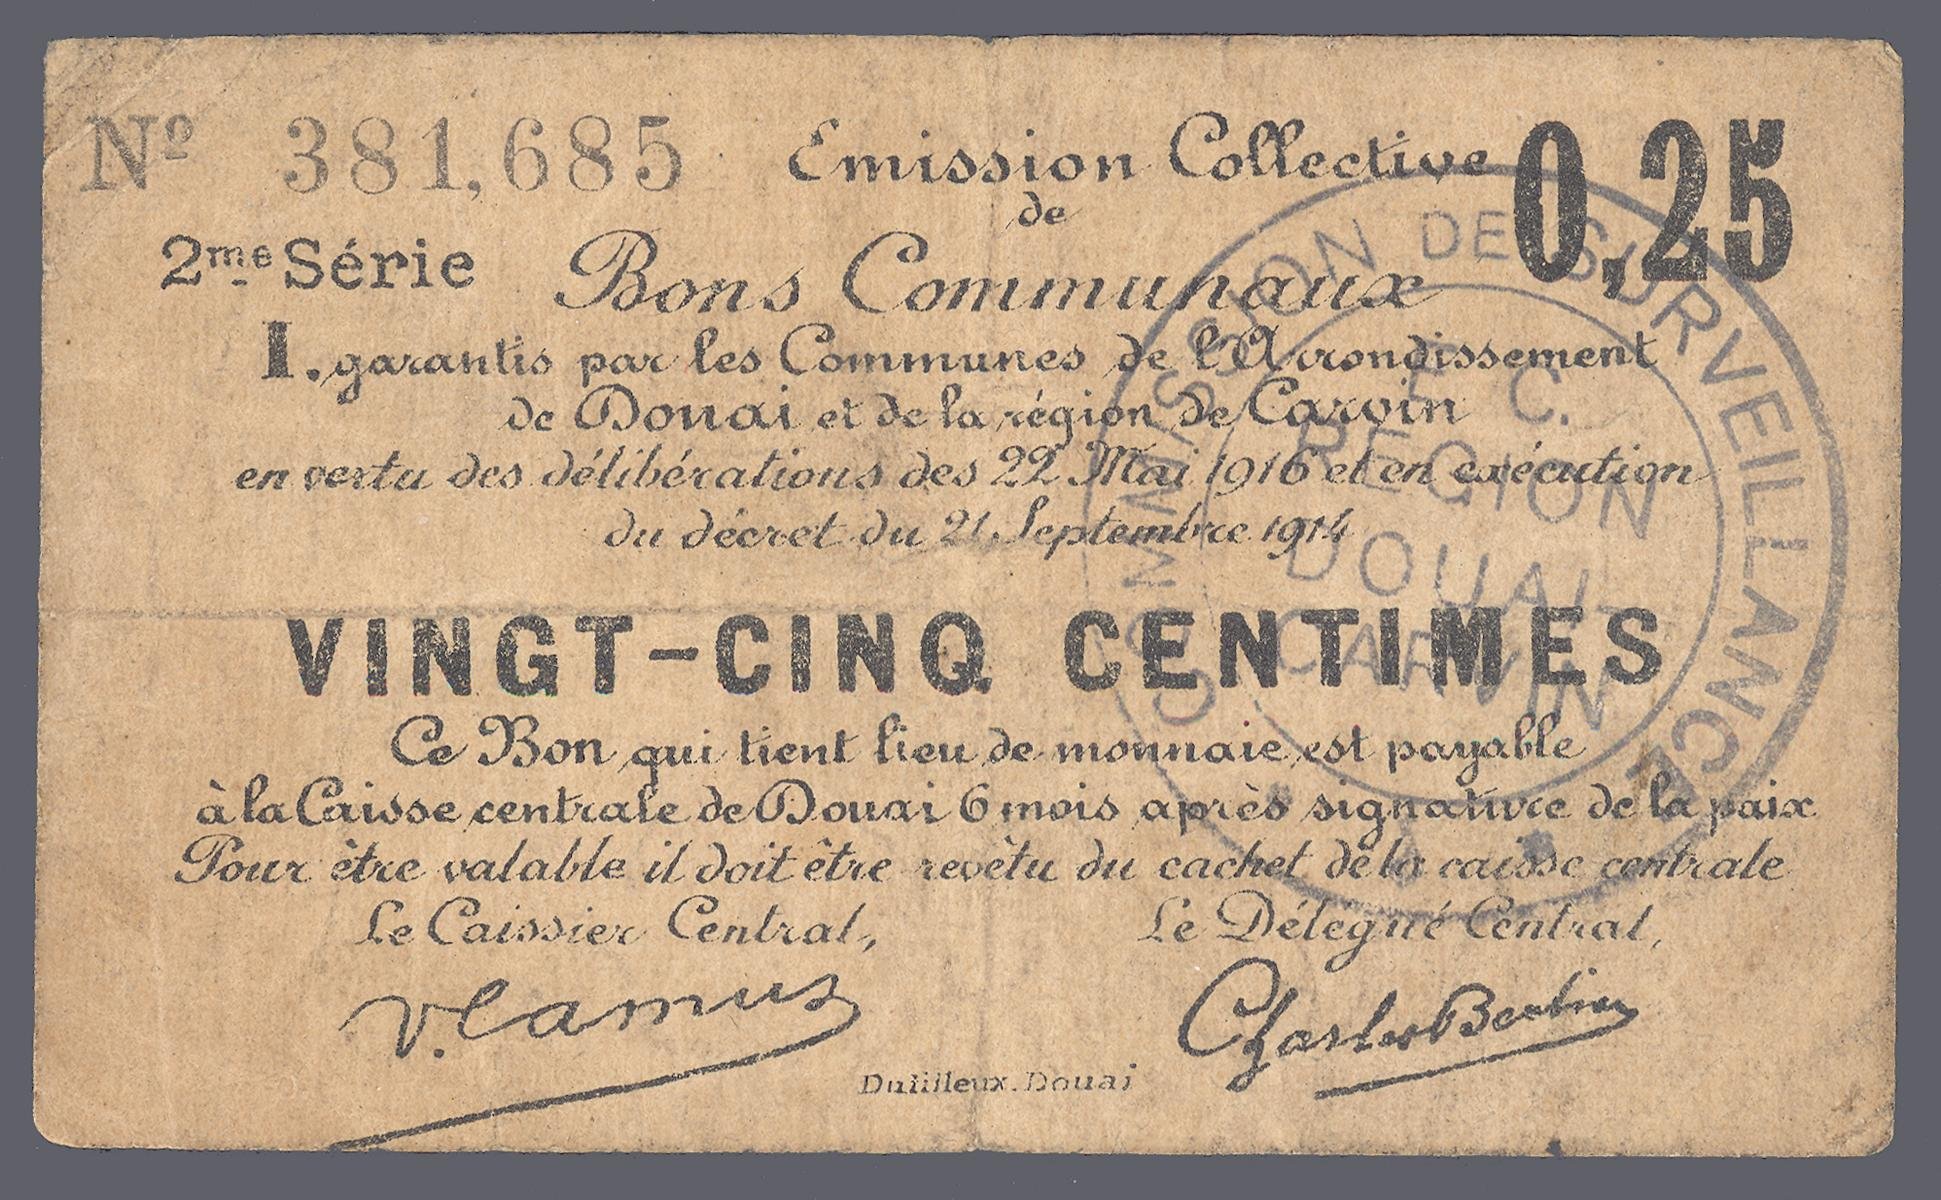 Nº 381,685
Emission Collective
0,25
de
2me Série
Bons Communaux
I. garantis par les Communes de l'Arrondissement
de Douai et de la région de Carvin
en vertu des délibérations des 22 Mai 1916 et en exécution
du décret du 21 Septembre 1914
VINGT-CINQ CENTIMES
Ce Bon qui tient lieu de monnaie est payable
à la Caisse centrale de Douai 6 mois après signature de la paix
Pour être valable il doit être revêtu du cachet de la caisse centrale
Le Caissier Central,
Le Délégué Central,
V. Camus
Charles
Dutilleux. Douai
COMMISSION DE SURVEILLANCE
C.
REGION
DOUAI-
CARVIN